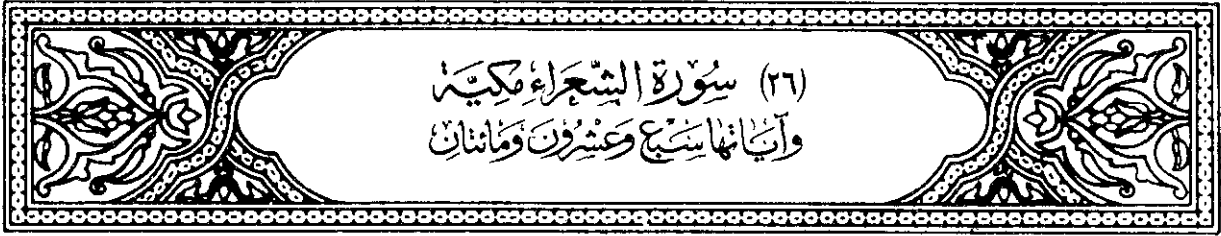 (٢٦) سُوْرَة الشُّعَرَاءِ مَكِّيَّة
وَآيَاتُهَا سَبْعٌ وَعِشْرُوْنَ وَمَائَتَانِ